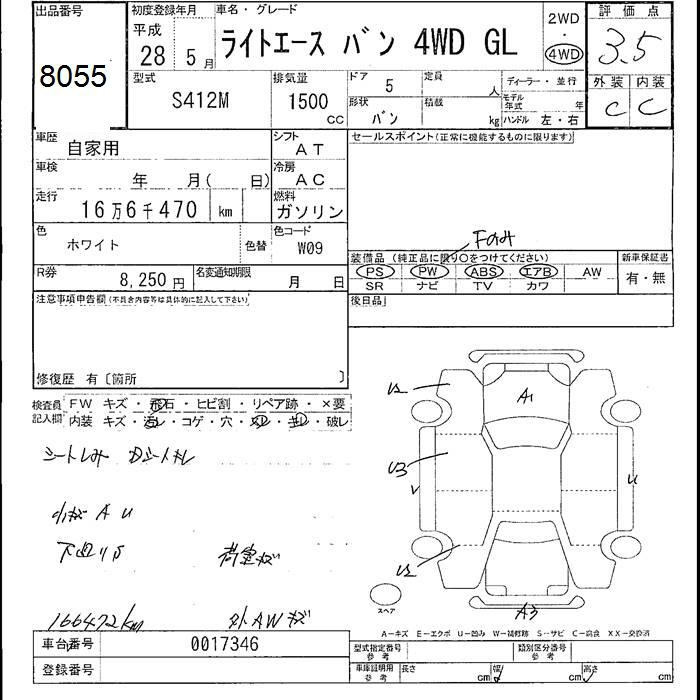 出品番号
8055
初度登録年月
平成
28 5 月
車名・グレード
ライトエース バン 4WD GL
2WD
・
4WD
評価点
3.5
型式
S412M
排気量
1500
CC
ドア 5
定員
人
ディーラー・並行
モデル年式
年
外装 内装
C C
形状
バン
積載
kg
ハンドル 左・右
車歴
自家用
シフト
AT
セールスポイント(正常に機能するものに限ります)
車検
年 月( 日)
冷房
AC
走行
16万6千470 km
燃料
ガソリン
色
ホワイト
色替
色コード
W09
Fのみ
装備品 (純正品に限り○をつけてください)
新車保証書
PS PW ABS エアB AW
有・無
SR ナビ TV カワ
R券
8,250 円
名変通知期限
月 日
後日品
注意事項申告欄(不具合内容等は具体的に記入して下さい)
修復歴 有〔箇所 〕
検査員記入欄
FW キズ・飛石・ヒビ割・リペア跡・×要
内装 キズ・汚レ・コゲ・穴・スレ・キレ・破レ
シートしみ Dシートキレ
小キズ A U
下廻りS
荷室キズ
166472km
外AWキズ
U2
A1
U3
V
U
U2
スペア
A3
A-キズ E-エクボ U-凹み W-補修跡 S-サビ C-腐食 XX-交換済
車台番号
0017346
登録番号
型式指定番号
参考
類別区分番号
参考
車庫証明用
参考
長さ
cm
幅
cm
高さ
cm